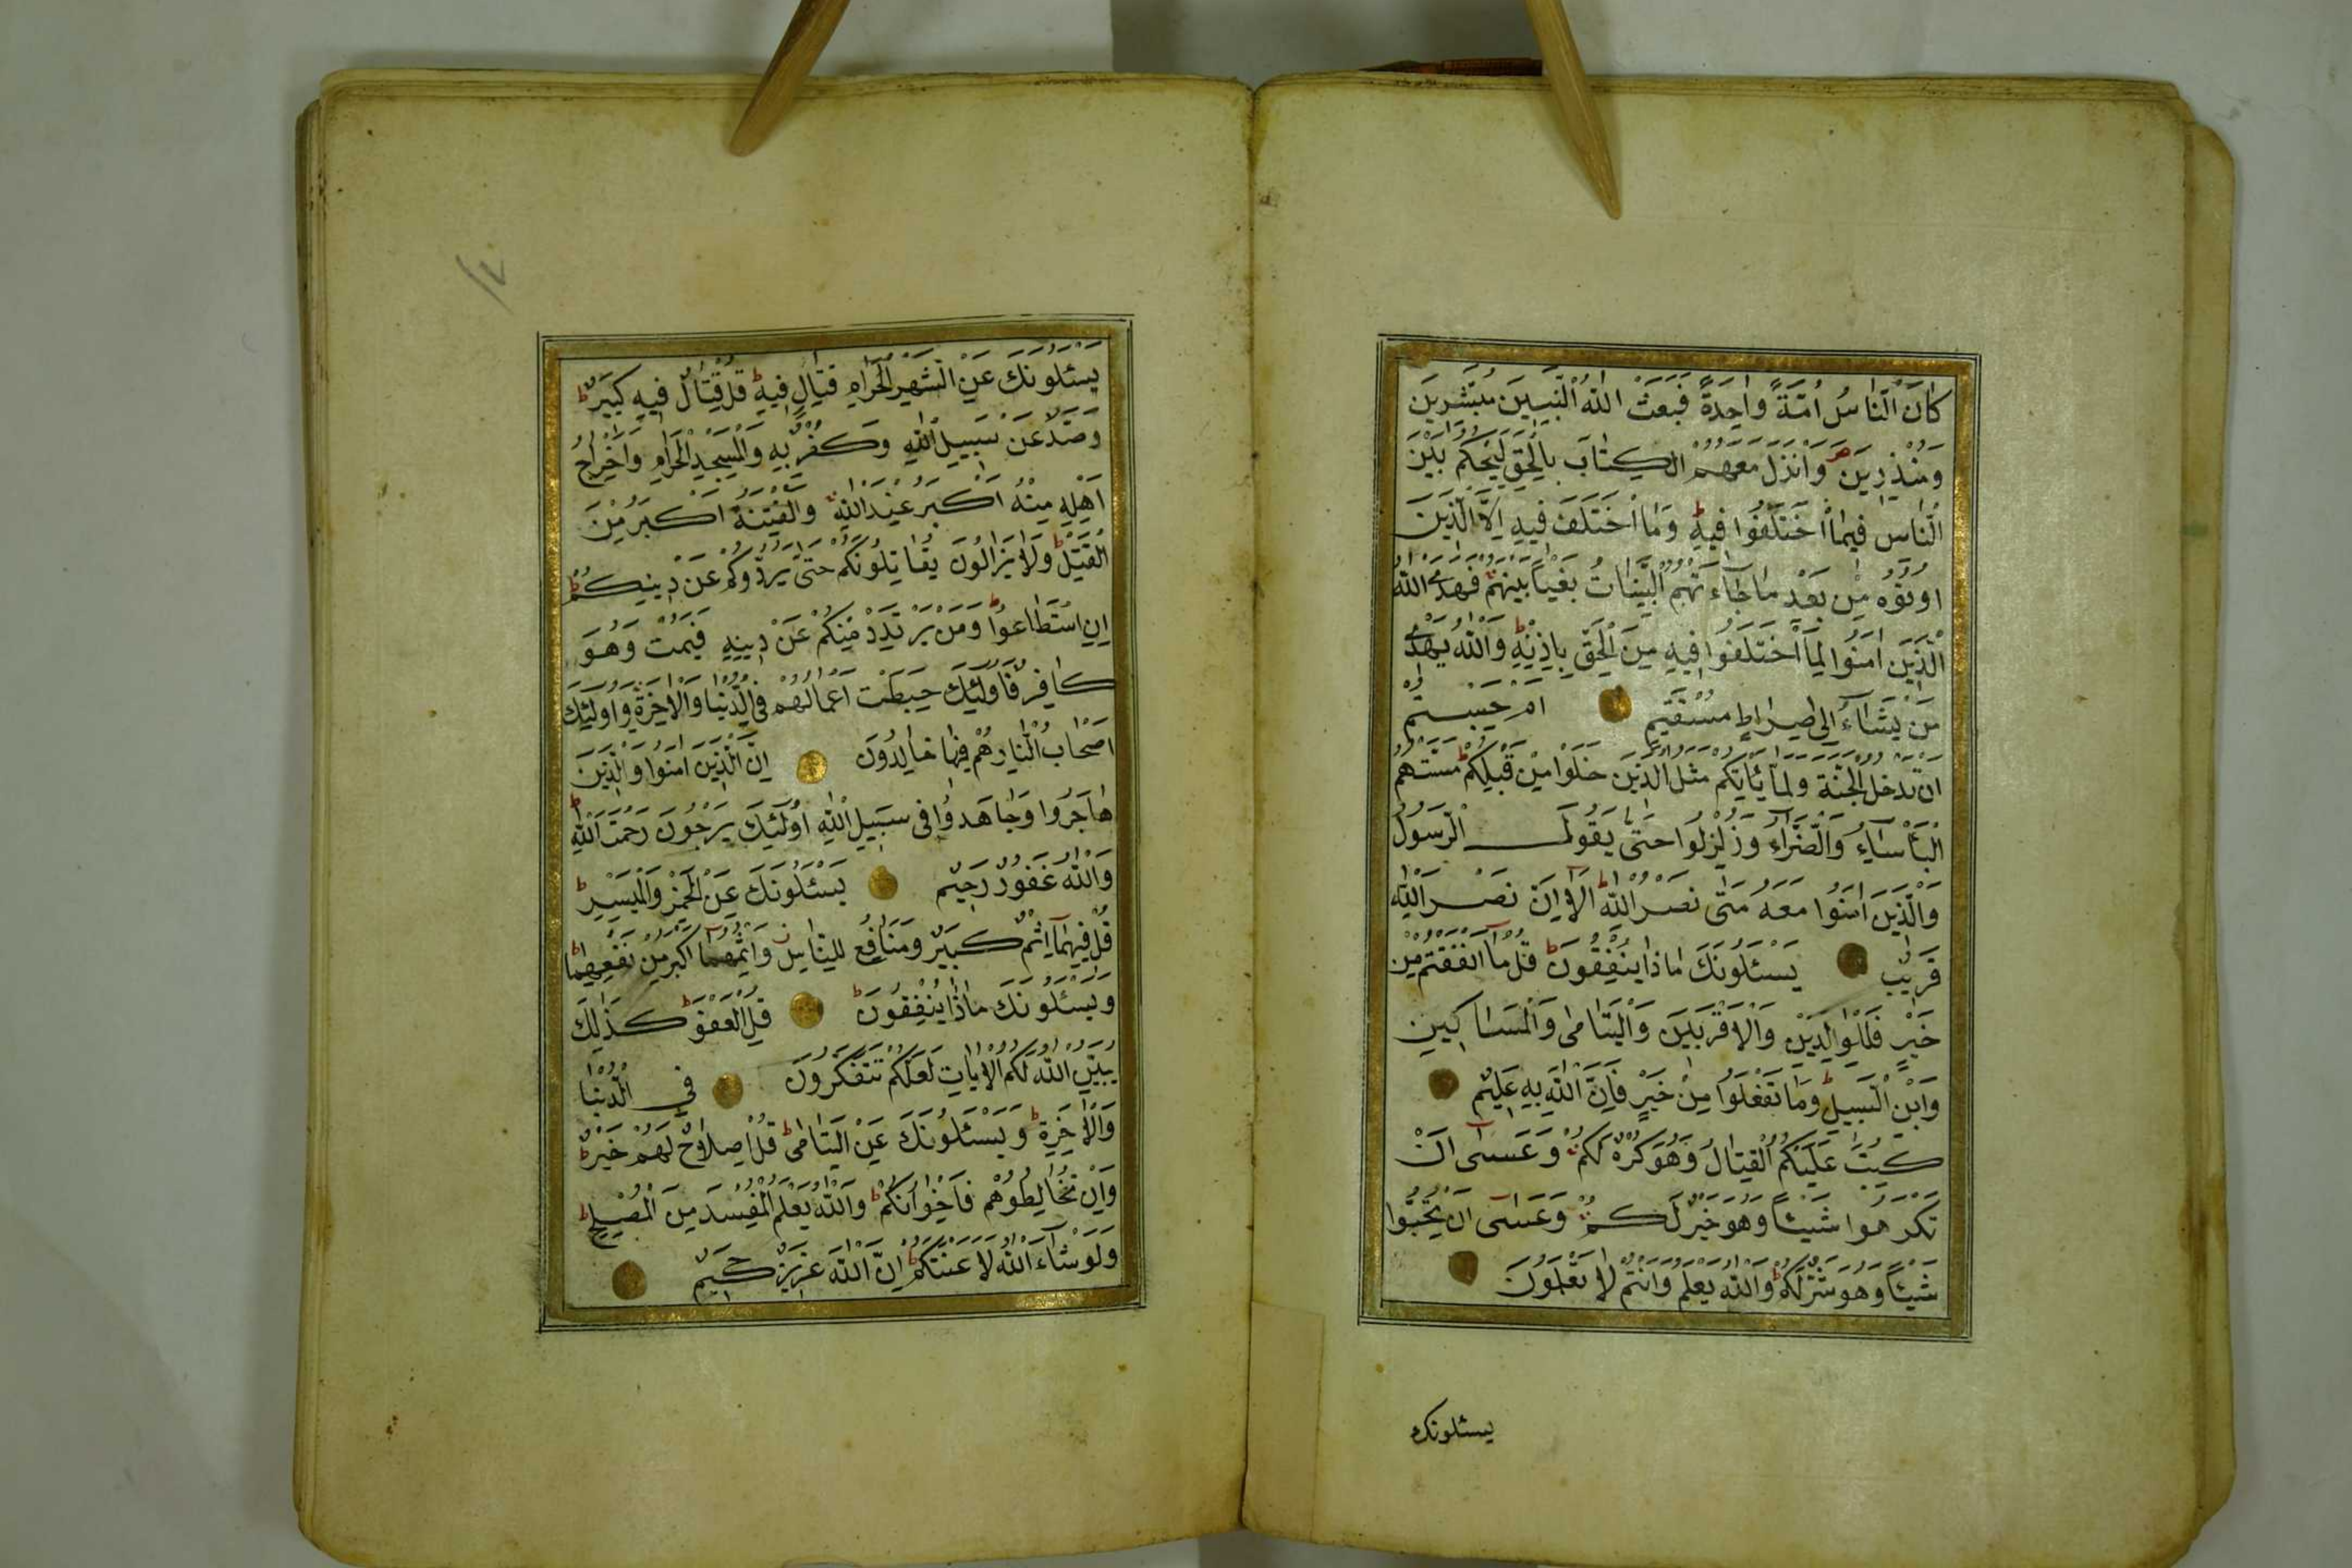 كَانَ النَّاسُ اُمَّةً وَاحِدَةً فَبَعَثَ اللّٰهُ النَّبِيّٖنَ مُبَشِّرِينَ
وَمُنْذِرِينَ وَاَنْزَلَ مَعَهُمُ الْكِتَابَ بِالْحَقِّ لِيَحْكُمَ بَيْنَ
النَّاسِ فِيمَا اخْتَلَفُوا فِيهِ وَمَا اخْتَلَفَ فِيهِ اِلَّا الَّذِينَ
اُوتُوهُ مِنْ بَعْدِ مَا جَاءَتْهُمُ الْبَيِّنَاتُ بَغْيًا بَيْنَهُمْ فَهَدَى اللّٰهُ
الَّذِينَ اٰمَنُوا لِمَا اخْتَلَفُوا فِيهِ مِنَ الْحَقِّ بِاِذْنِهِ وَاللّٰهُ يَهْدِى
مَنْ يَشَاءُ اِلٰى صِرَاطٍ مُسْتَقِيمٍ اَمْ حَسِبْتُمْ
اَنْ تَدْخُلُوا الْجَنَّةَ وَلَمَّا يَأْتِكُمْ مَثَلُ الَّذِينَ خَلَوْا مِنْ قَبْلِكُمْ مَسَّتْهُمُ
الْبَأْسَاءُ وَالضَّرَّاءُ وَزُلْزِلُوا حَتّٰى يَقُولَ الرَّسُولُ
وَالَّذِينَ اٰمَنُوا مَعَهُ مَتٰى نَصْرُ اللّٰهِ اَلَا اِنَّ نَصْرَ اللّٰهِ
قَرِيبٌ يَسْـَٔلُونَكَ مَاذَا يُنْفِقُونَ قُلْ مَا اَنْفَقْتُمْ مِنْ
خَيْرٍ فَلِلْوَالِدَيْنِ وَالْاَقْرَبِينَ وَالْيَتَامٰى وَالْمَسَاكِينِ
وَابْنِ السَّبِيلِ وَمَا تَفْعَلُوا مِنْ خَيْرٍ فَاِنَّ اللّٰهَ بِهِ عَلِيمٌ
كُتِبَ عَلَيْكُمُ الْقِتَالُ وَهُوَ كُرْهٌ لَكُمْ وَعَسٰى اَنْ
تَكْرَهُوا شَيْئًا وَهُوَ خَيْرٌ لَكُمْ وَعَسٰى اَنْ تُحِبُّوا
شَيْئًا وَهُوَ شَرٌّ لَكُمْ وَاللّٰهُ يَعْلَمُ وَاَنْتُمْ لَا تَعْلَمُونَ
يسئلونك
١٧
يَسْـَٔلُونَكَ عَنِ الشَّهْرِ الْحَرَامِ قِتَالٍ فِيهِ قُلْ قِتَالٌ فِيهِ كَبِيرٌ
وَصَدٌّ عَنْ سَبِيلِ اللّٰهِ وَكُفْرٌ بِهِ وَالْمَسْجِدِ الْحَرَامِ وَاِخْرَاجُ
اَهْلِهِ مِنْهُ اَكْبَرُ عِنْدَ اللّٰهِ وَالْفِتْنَةُ اَكْبَرُ مِنَ
الْقَتْلِ وَلَا يَزَالُونَ يُقَاتِلُونَكُمْ حَتّٰى يَرُدُّوكُمْ عَنْ دِينِكُمْ
اِنِ اسْتَطَاعُوا وَمَنْ يَرْتَدِدْ مِنْكُمْ عَنْ دِينِهِ فَيَمُتْ وَهُوَ
كَافِرٌ فَاُولٰئِكَ حَبِطَتْ اَعْمَالُهُمْ فِى الدُّنْيَا وَالْاٰخِرَةِ وَاُولٰئِكَ
اَصْحَابُ النَّارِ هُمْ فِيهَا خَالِدُونَ اِنَّ الَّذِينَ اٰمَنُوا وَالَّذِينَ
هَاجَرُوا وَجَاهَدُوا فِى سَبِيلِ اللّٰهِ اُولٰئِكَ يَرْجُونَ رَحْمَتَ اللّٰهِ
وَاللّٰهُ غَفُورٌ رَحِيمٌ يَسْـَٔلُونَكَ عَنِ الْخَمْرِ وَالْمَيْسِرِ
قُلْ فِيهِمَا اِثْمٌ كَبِيرٌ وَمَنَافِعُ لِلنَّاسِ وَاِثْمُهُمَا اَكْبَرُ مِنْ نَفْعِهِمَا
وَيَسْـَٔلُونَكَ مَاذَا يُنْفِقُونَ قُلِ الْعَفْوَ كَذٰلِكَ
يُبَيِّنُ اللّٰهُ لَكُمُ الْاٰيَاتِ لَعَلَّكُمْ تَتَفَكَّرُونَ فِى الدُّنْيَا
وَالْاٰخِرَةِ وَيَسْـَٔلُونَكَ عَنِ الْيَتَامٰى قُلْ اِصْلَاحٌ لَهُمْ خَيْرٌ
وَاِنْ تُخَالِطُوهُمْ فَاِخْوَانُكُمْ وَاللّٰهُ يَعْلَمُ الْمُفْسِدَ مِنَ الْمُصْلِحِ
وَلَوْ شَاءَ اللّٰهُ لَاَعْنَتَكُمْ اِنَّ اللّٰهَ عَزِيزٌ حَكِيمٌ